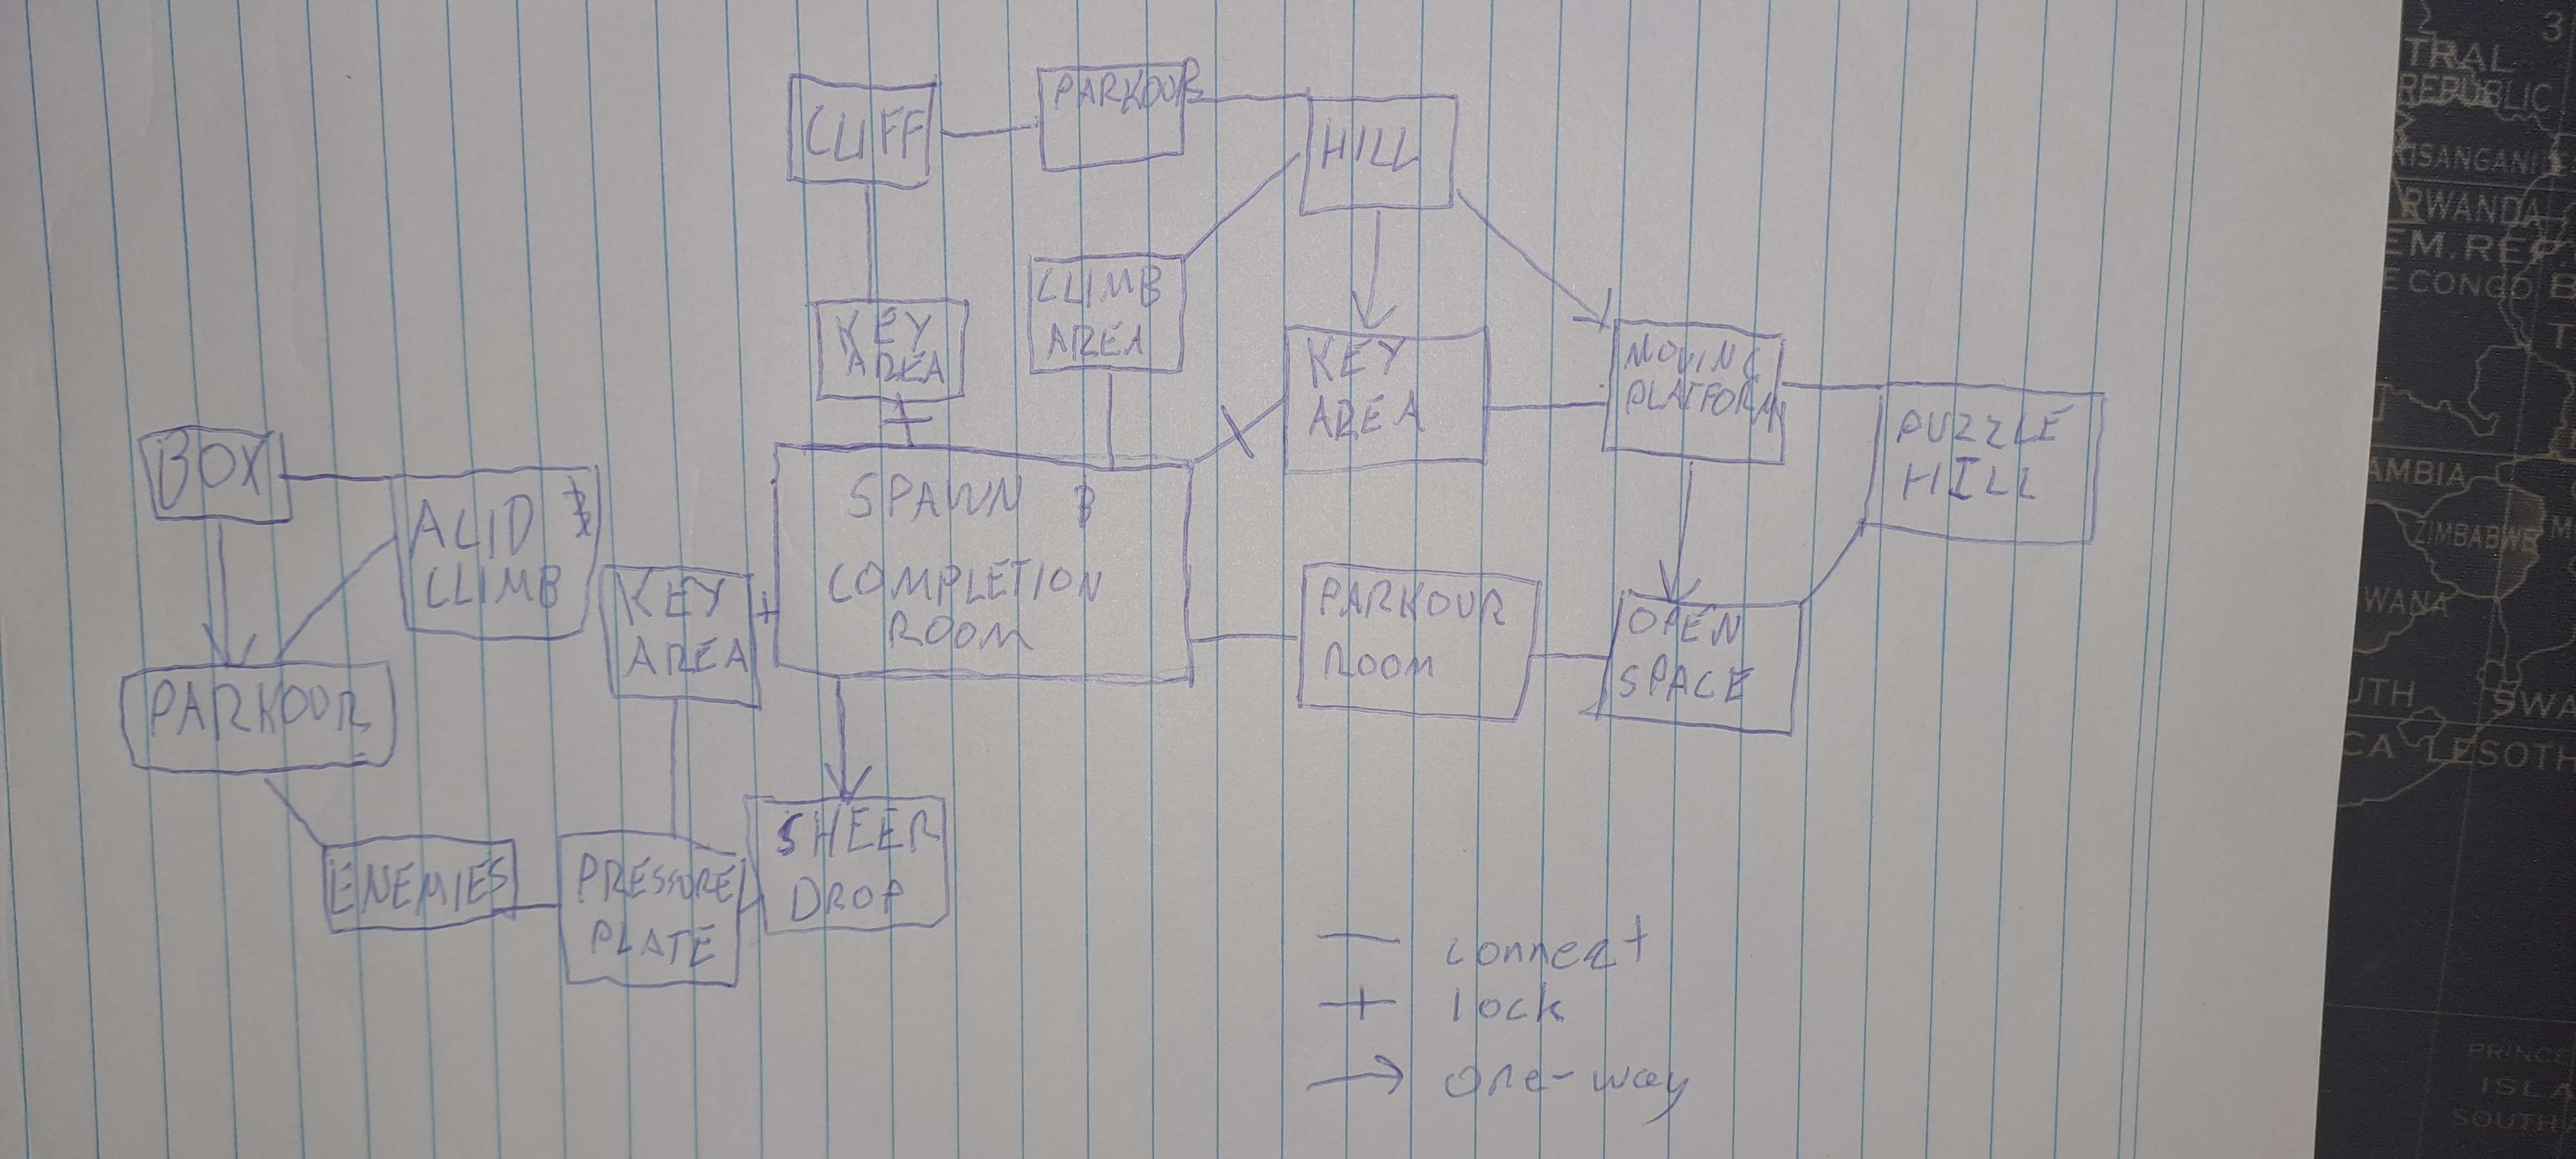 CLIFF
PARKOUR
HILL
CLIMB
AREA
KEY
AREA
KEY
AREA
MOVING
PLATFORM
PUZZLE
HILL
BOX
ACID
CLIMB
KEY
AREA
SPAWN &
COMPLETION
ROOM
PARKOUR
ROOM
OPEN
SPACE
PARKOUR
ENEMIES
PRESSURE
PLATE
SHEER
DROP
connect
lock
one-way
3
TRAL
REPUBLIC
KISANGANI
RWANDA
EM. REP.
E CONGO
AMBIA
ZIMBABWE
WANA
UTH
SWA
CA
LESOTH
PRINCE
ISLA
SOUTH